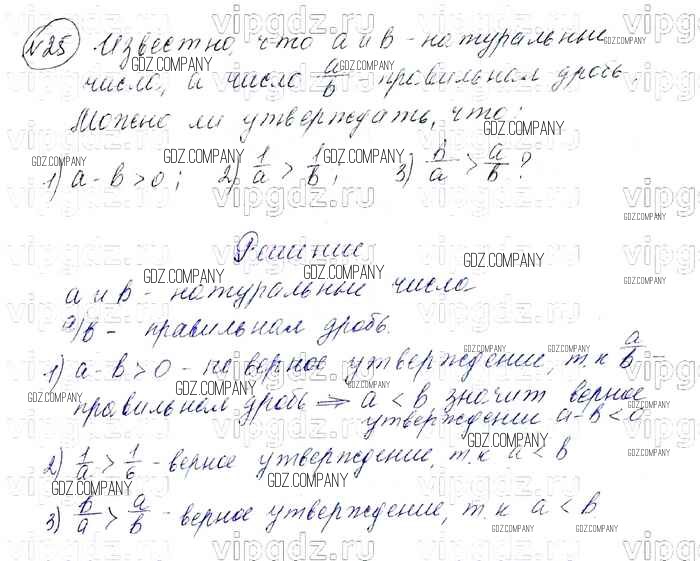 №25 Известно, что a и b - натуральные
числа, а число a/b - правильная дробь.
Можно ли утверждать, что:
1) a - b > 0; 2) 1/a > 1/b; 3) b/a > a/b ?
Решение
a и b - натуральные числа
a/b - правильная дробь.
1) a - b > 0 - не верное утверждение, т.к a/b -
правильная дробь ⇒ a < b значит верное
утверждении a-b<0
2) 1/a > 1/b - верное утверждение, т.к a < b
3) b/a > a/b - верное утверждение, т.к a < b
GDZ.COMPANY
vipgdz.ru